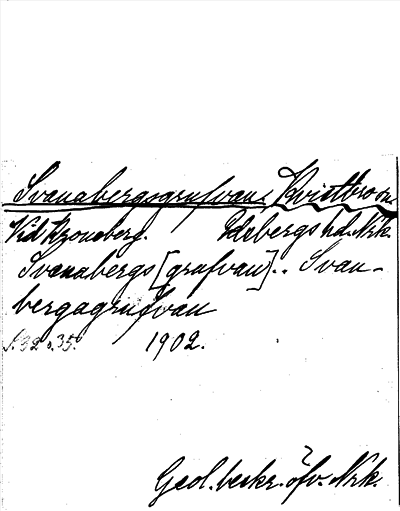 Svanabergsgrufvan. Kvistbro sn.
Vid Kroneberg. Edsbergs hd. Nrk.
Svanabergs [grufvan].. Svan-
bergagrufvan
s. 32 o. 35. 1902.
Geol. beskr. öfv. Nrk.